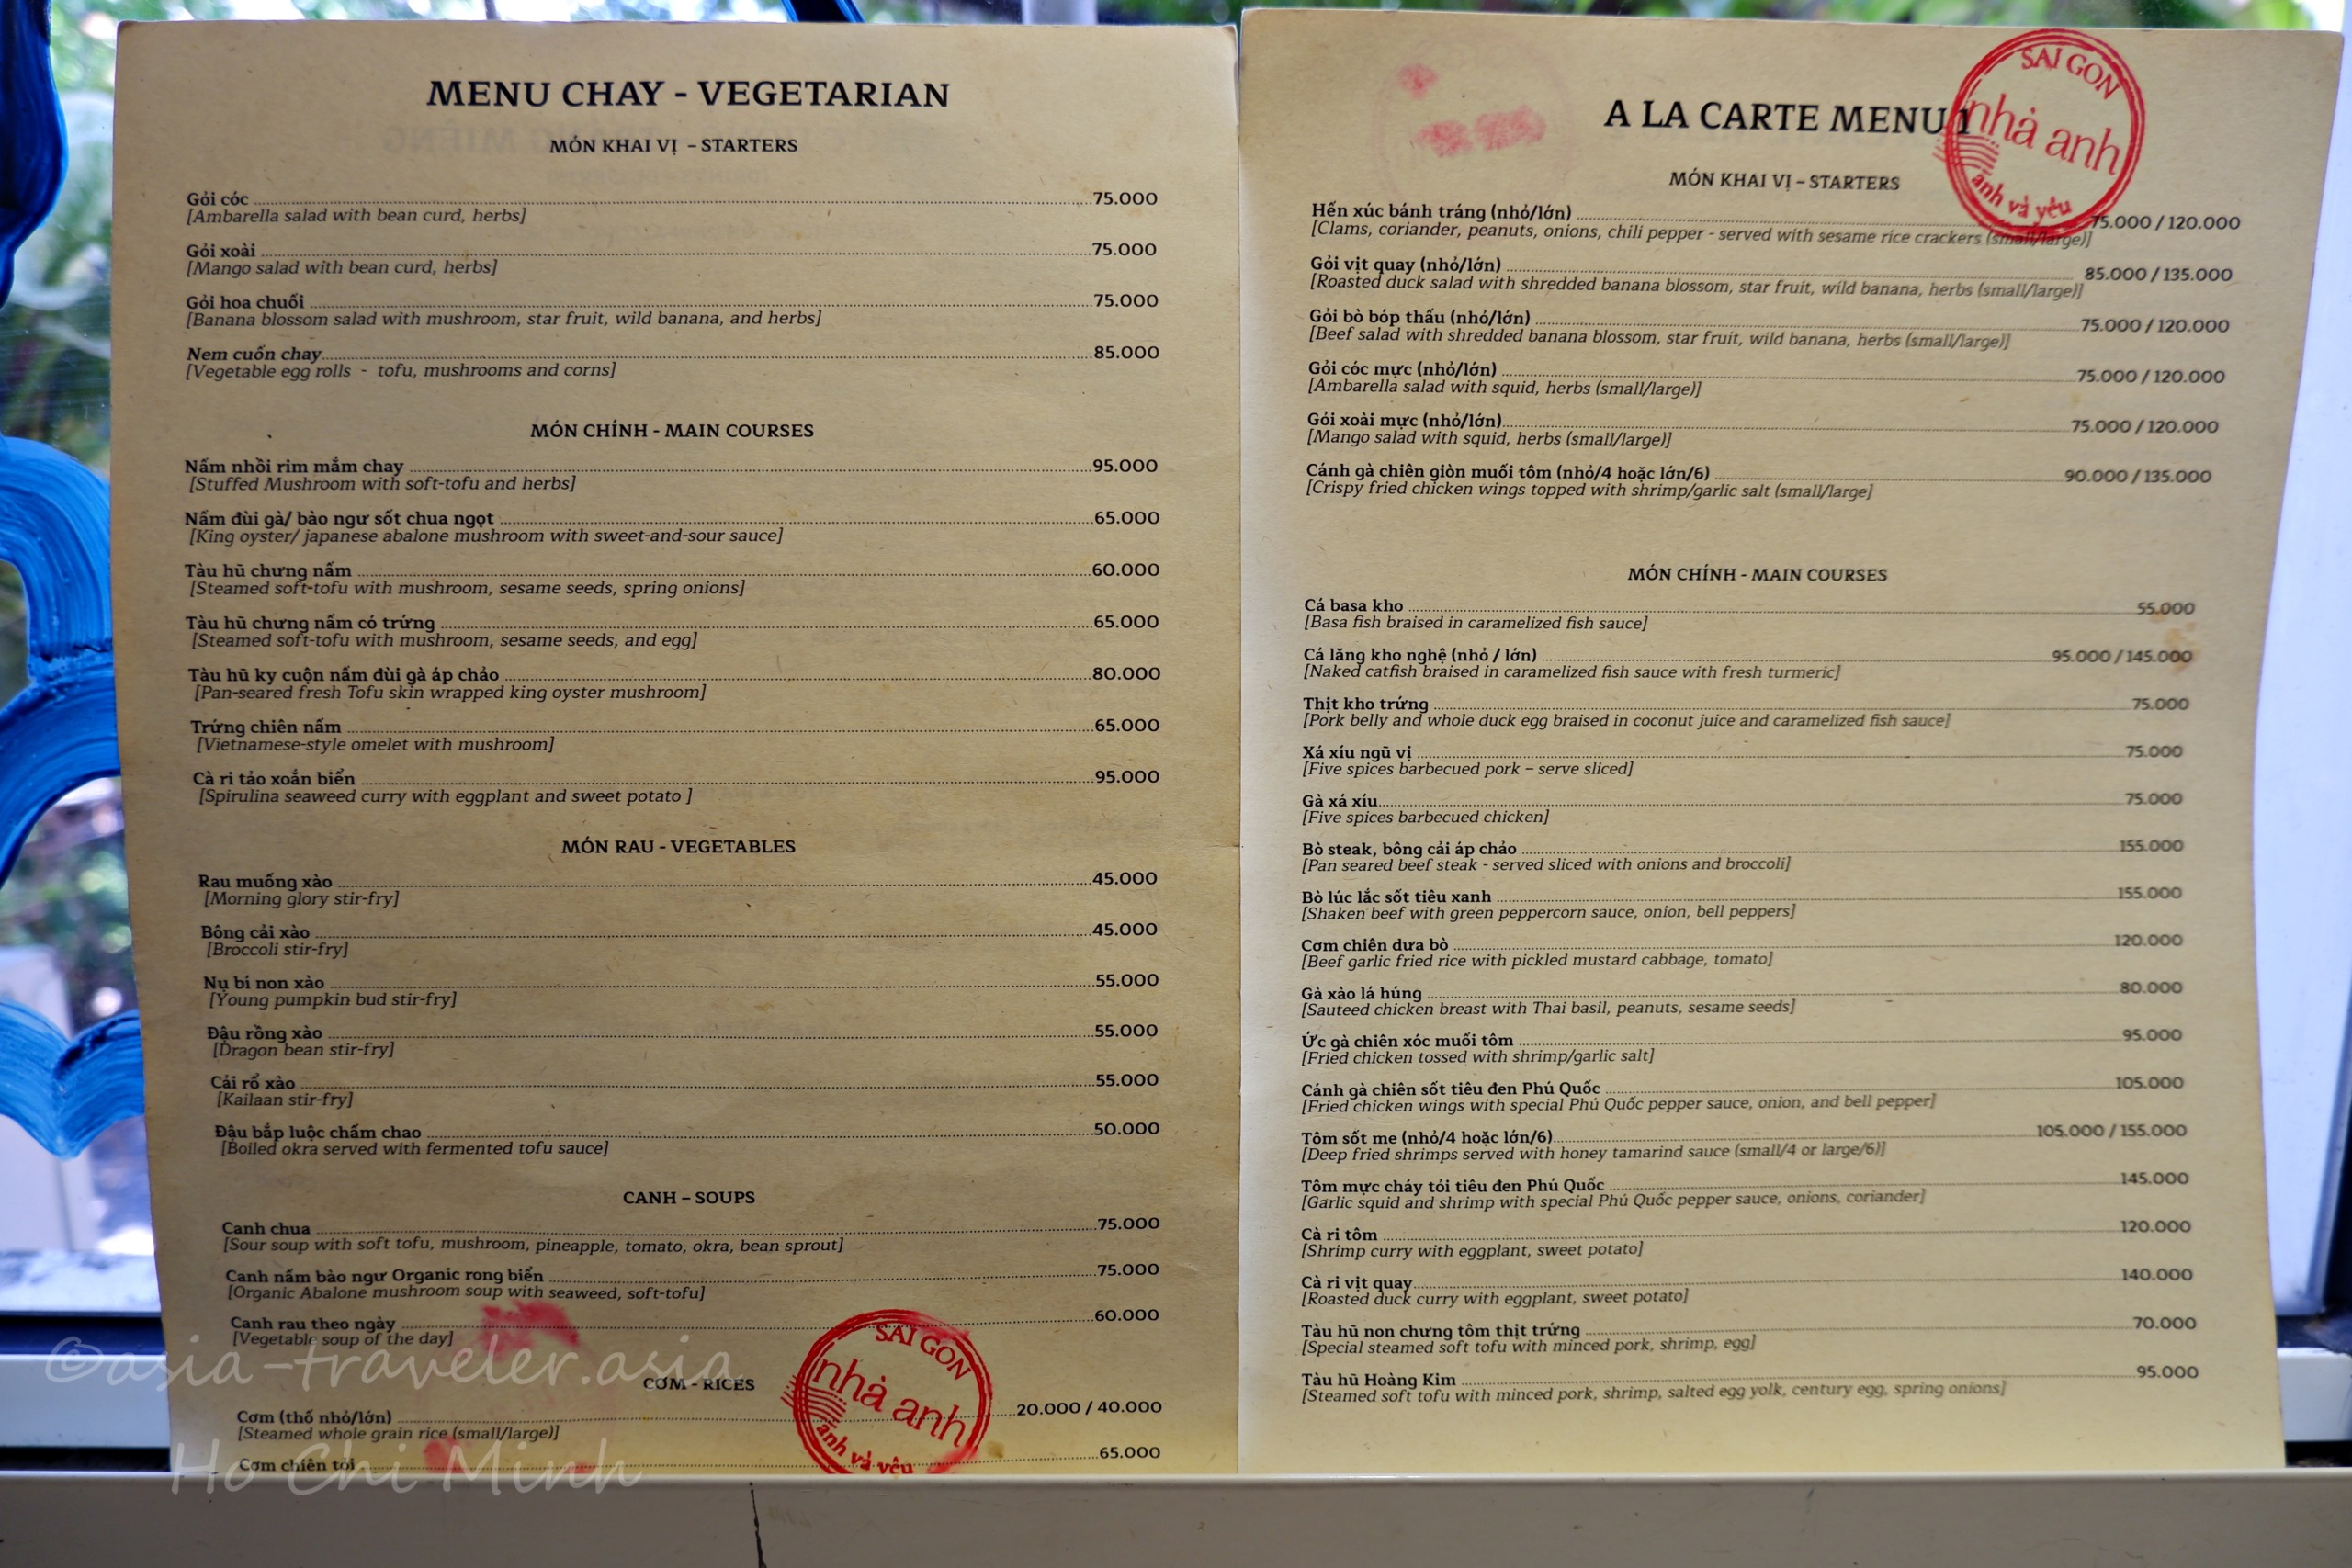 MENU CHAY - VEGETARIAN
MÓN KHAI VỊ - STARTERS
Gỏi cóc 75.000
[Ambarella salad with bean curd, herbs]
Gỏi xoài 75.000
[Mango salad with bean curd, herbs]
Gỏi hoa chuối 75.000
[Banana blossom salad with mushroom, star fruit, wild banana, and herbs]
Nem cuốn chay 85.000
[Vegetable egg rolls - tofu, mushrooms and corns]
MÓN CHÍNH - MAIN COURSES
Nấm nhồi rim mắm chay 95.000
[Stuffed Mushroom with soft-tofu and herbs]
Nấm đùi gà/ bào ngư sốt chua ngọt 65.000
[King oyster/ japanese abalone mushroom with sweet-and-sour sauce]
Tàu hũ chưng nấm 60.000
[Steamed soft-tofu with mushroom, sesame seeds, spring onions]
Tàu hũ chưng nấm có trứng 65.000
[Steamed soft-tofu with mushroom, sesame seeds, and egg]
Tàu hũ ky cuộn nấm đùi gà áp chảo 80.000
[Pan-seared fresh Tofu skin wrapped king oyster mushroom]
Trứng chiên nấm 65.000
[Vietnamese-style omelet with mushroom]
Cà ri tảo xoắn biển 95.000
[Spirulina seaweed curry with eggplant and sweet potato ]
MÓN RAU - VEGETABLES
Rau muống xào 45.000
[Morning glory stir-fry]
Bông cải xào 45.000
[Broccoli stir-fry]
Nụ bí non xào 55.000
[Young pumpkin bud stir-fry]
Đậu rồng xào 55.000
[Dragon bean stir-fry]
Cải rổ xào 55.000
[Kailaan stir-fry]
Đậu bắp luộc chấm chao 50.000
[Boiled okra served with fermented tofu sauce]
CANH – SOUPS
Canh chua 75.000
[Sour soup with soft tofu, mushroom, pineapple, tomato, okra, bean sprout]
Canh nấm bào ngư Organic rong biển 75.000
[Organic Abalone mushroom soup with seaweed, soft-tofu]
Canh rau theo ngày 60.000
[Vegetable soup of the day]
CƠM - RICES
Cơm (thố nhỏ/lớn) 20.000 / 40.000
[Steamed whole grain rice (small/large)]
Cơm chiên tỏi 65.000
SAI GON
nhà anh
anh và yêu
©asia-traveler.asia
Ho Chi Minh
A LA CARTE MENU 1
SAI GON
nhà anh
anh và yêu
MÓN KHAI VỊ – STARTERS
Hến xúc bánh tráng (nhỏ/lớn) 75.000 / 120.000
[Clams, coriander, peanuts, onions, chili pepper - served with sesame rice crackers (small/large)]
Gỏi vịt quay (nhỏ/lớn) 85.000 / 135.000
[Roasted duck salad with shredded banana blossom, star fruit, wild banana, herbs (small/large)]
Gỏi bò bóp thấu (nhỏ/lớn) 75.000 / 120.000
[Beef salad with shredded banana blossom, star fruit, wild banana, herbs (small/large)]
Gỏi cóc mực (nhỏ/lớn) 75.000 / 120.000
[Ambarella salad with squid, herbs (small/large)]
Gỏi xoài mực (nhỏ/lớn) 75.000 / 120.000
[Mango salad with squid, herbs (small/large)]
Cánh gà chiên giòn muối tôm (nhỏ/4 hoặc lớn/6) 90.000 / 135.000
[Crispy fried chicken wings topped with shrimp/garlic salt (small/large]
MÓN CHÍNH - MAIN COURSES
Cá basa kho 55.000
[Basa fish braised in caramelized fish sauce]
Cá lăng kho nghệ (nhỏ / lớn) 95.000 / 145.000
[Naked catfish braised in caramelized fish sauce with fresh turmeric]
Thịt kho trứng 75.000
[Pork belly and whole duck egg braised in coconut juice and caramelized fish sauce]
Xá xíu ngũ vị 75.000
[Five spices barbecued pork – serve sliced]
Gà xá xíu 75.000
[Five spices barbecued chicken]
Bò steak, bông cải áp chảo 155.000
[Pan seared beef steak - served sliced with onions and broccoli]
Bò lúc lắc sốt tiêu xanh 155.000
[Shaken beef with green peppercorn sauce, onion, bell peppers]
Cơm chiên dưa bò 120.000
[Beef garlic fried rice with pickled mustard cabbage, tomato]
Gà xào lá húng 80.000
[Sauteed chicken breast with Thai basil, peanuts, sesame seeds]
Ức gà chiên xóc muối tôm 95.000
[Fried chicken tossed with shrimp/garlic salt]
Cánh gà chiên sốt tiêu đen Phú Quốc 105.000
[Fried chicken wings with special Phú Quốc pepper sauce, onion, and bell pepper]
Tôm sốt me (nhỏ/4 hoặc lớn/6) 105.000 / 155.000
[Deep fried shrimps served with honey tamarind sauce (small/4 or large/6)]
Tôm mực cháy tỏi tiêu đen Phú Quốc 145.000
[Garlic squid and shrimp with special Phú Quốc pepper sauce, onions, coriander]
Cà ri tôm 120.000
[Shrimp curry with eggplant, sweet potato]
Cà ri vịt quay 140.000
[Roasted duck curry with eggplant, sweet potato]
Tàu hũ non chưng tôm thịt trứng 70.000
[Special steamed soft tofu with minced pork, shrimp, egg]
Tàu hũ Hoàng Kim 95.000
[Steamed soft tofu with minced pork, shrimp, salted egg yolk, century egg, spring onions]